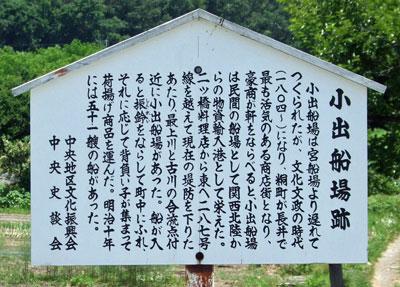 小出船場跡
小出船場は宮船場より遅れて
つくられたが、文化文政の時代
(一八〇四〜)になり、桐町が長井で
最も活気のある商店街となり、
豪商が軒をならべると小出船場
は民間の船場として関西北陸か
らの物資輸入港として栄えた。
二ッ橋料理店から東へ二八七号
線を越えて現在の堤防を下りた
あたり、最上川と古川の合流点付
近に小出船場があった。船が入
ると振鈴をならして町中にふれ、
それに応じて背負い子が集まって
荷揚げ商品を運んだ。明治十年
には五十一艘の船があった。
中央地区文化振興会
中央史談会